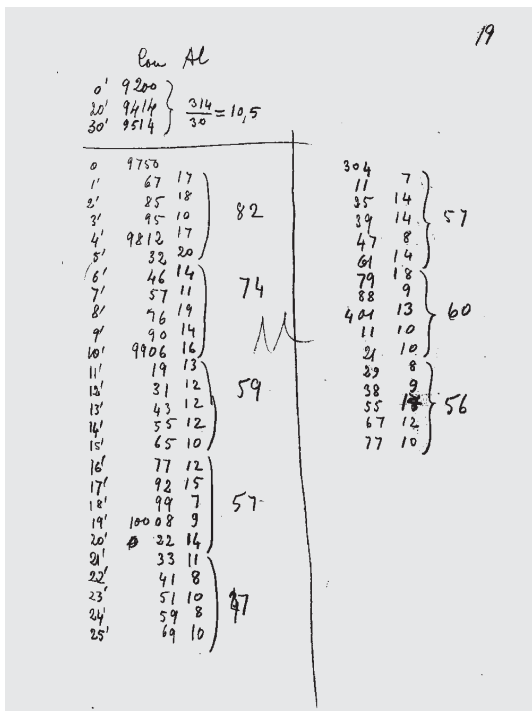 19
Con Al
0' 9200
20' 9414 314/30 = 10,5
30' 9514
0 9750
1' 67 17
2' 85 18
3' 95 10 82
4' 9812 17
5' 32 20
6' 46 14
7' 57 11 74
8' 76 19
9' 90 14
10' 9906 16
11' 19 13
12' 31 12 59
13' 43 12
14' 55 12
15' 65 10
16' 77 12
17' 92 15
18' 99 7 57
19' 10008 9
20' 22 14
21' 33 11
22' 41 8
23' 51 10 47
24' 59 8
25' 69 10
304
11 7
25 14
39 14 57
47 8
61 14
79 18
88 9
401 13 60
11 10
21 10
29 8
38 9
55 56
67 12
77 10